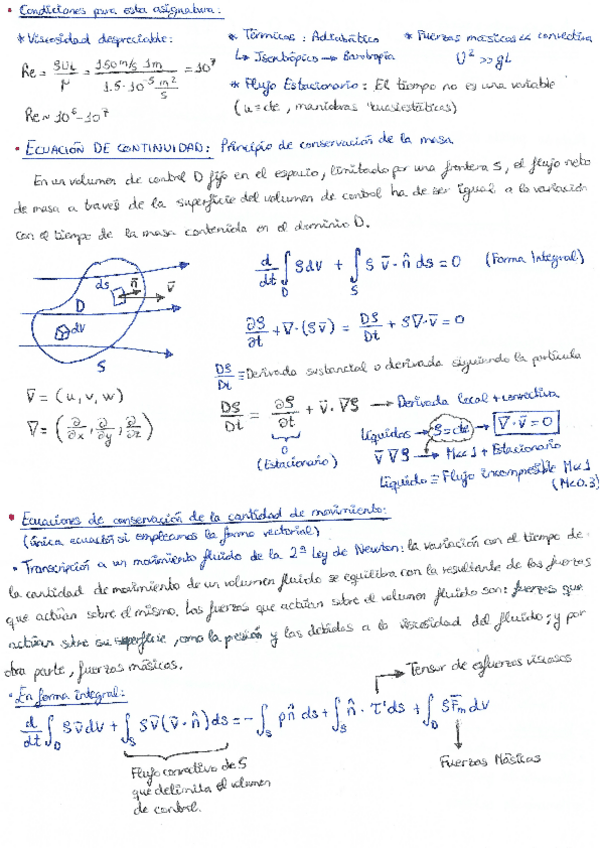 • Condiciones para esta asignatura:
* Viscosidad despreciable: * Térmicas: Adiabático * Fuerzas másicas << convectiva
↳ Isentrópico → Barotropía U² >> gL
Re = ρUL/μ = 150 m/s · 1m / 1.5·10⁻⁵ m²/s = 10⁷
* Flujo Estacionario: El tiempo no es una variable
Re ~ 10⁶ - 10⁷ (u = cte, maniobras cuasiestáticas)
• ECUACIÓN DE CONTINUIDAD: Principio de conservación de la masa
En un volumen de control D fijo en el espacio, limitado por una frontera S, el flujo neto
de masa a través de la superficie del volumen de control ha de ser igual a la variación
con el tiempo de la masa contenida en el dominio D.
ds n̄ v̄ D dv S
d/dt ∫_D ρdv + ∫_S ρ v̄·n̂ ds = 0 (Forma Integral)
∂ρ/∂t + ∇·(ρv̄) = Dρ/Dt + ρ∇·v̄ = 0
Dρ/Dt ≡ Derivada sustancial o derivada siguiendo la partícula
v̄ = (u, v, w)
∇ = (∂/∂x, ∂/∂y, ∂/∂z)
Dρ/Dt = ∂ρ/∂t + v̄·∇ρ → Derivada local + convectiva
0
(Estacionario)
Líquidos → ρ = cte → ∇·v̄ = 0
v̄ ∇ρ → M<<1 + Estacionario
Líquido ≡ Flujo incompresible M<<1
(M<0.3)
• Ecuaciones de conservación de la cantidad de movimiento:
(única ecuación si empleamos la forma vectorial)
• Transcripción a un movimiento fluido de la 2ª Ley de Newton: la variación con el tiempo de
la cantidad de movimiento de un volumen fluido se equilibra con la resultante de las fuerzas
que actúan sobre el mismo. Las fuerzas que actúan sobre el volumen fluido son: fuerzas que
actúan sobre su superficie, como la presión y las debidas a la viscosidad del fluido; y por
otra parte, fuerzas másicas.
→ Tensor de esfuerzos viscosos
• En forma integral:
d/dt ∫_D ρv̄dv + ∫_S ρv̄(v̄·n̂)ds = -∫_S pn̂ ds + ∫_S n̂·τ'ds + ∫_D ρF̄m dv
Flujo convectivo de S
que delimita el volumen
de control.
Fuerzas Másicas